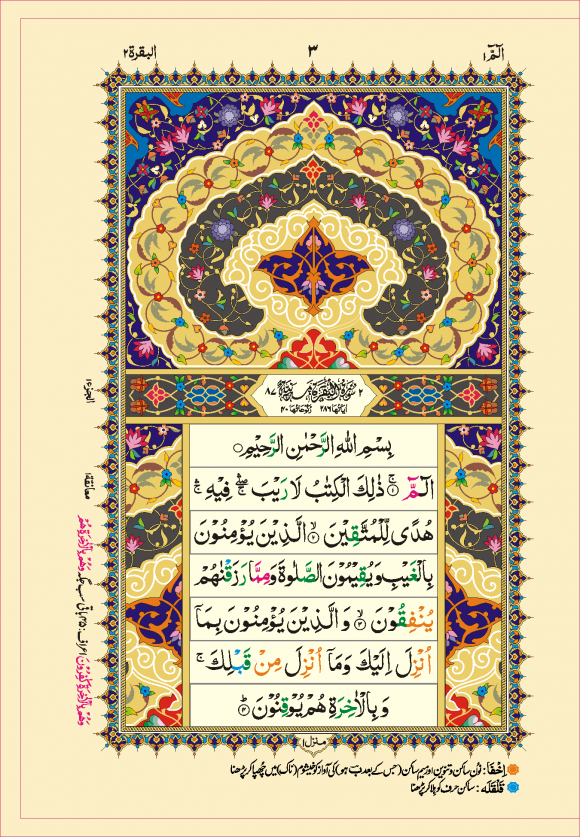 الٓمّٓ ١
٣
البقرة ٢
٢ سُوْرَةُ الْبَقَرَةِ مَدَنِيَّةٌ ٨٧
اٰيَاتُهَا ٢٨٦ رُكُوْعَاتُهَا ٤٠
بِسْمِ اللّٰهِ الرَّحْمٰنِ الرَّحِيْمِ
الٓمّٓ ۚ﴿١﴾ ذٰلِكَ الْكِتٰبُ لَا رَيْبَ ۛۖ فِيْهِ ۛۚ
هُدًى لِّلْمُتَّقِيْنَ ۙ﴿٢﴾ الَّذِيْنَ يُؤْمِنُوْنَ
بِالْغَيْبِ وَيُقِيْمُوْنَ الصَّلٰوةَ وَمِمَّا رَزَقْنٰهُمْ
يُنْفِقُوْنَ ۙ﴿٣﴾ وَالَّذِيْنَ يُؤْمِنُوْنَ بِمَآ
اُنْزِلَ اِلَيْكَ وَمَآ اُنْزِلَ مِنْ قَبْلِكَ ۚ
وَبِالْاٰخِرَةِ هُمْ يُوْقِنُوْنَ ؕ﴿٤﴾
منزل ١
الجزء ١
معانقة ١
وَهُمْ بِالْاٰخِرَةِ كٰفِرُوْنَ اعراف: ٤٥ باقی سب جگہ وَهُمْ بِالْاٰخِرَةِ هُمْ
اِخْفَا: نون ساکن و تنوین اور میم ساکن (جس کے بعد ب ہو) کی آواز کو خیشوم (ناک) میں چھپا کر پڑھنا
قَلْقَلَه: ساکن حرف کو ہلا کر پڑھنا